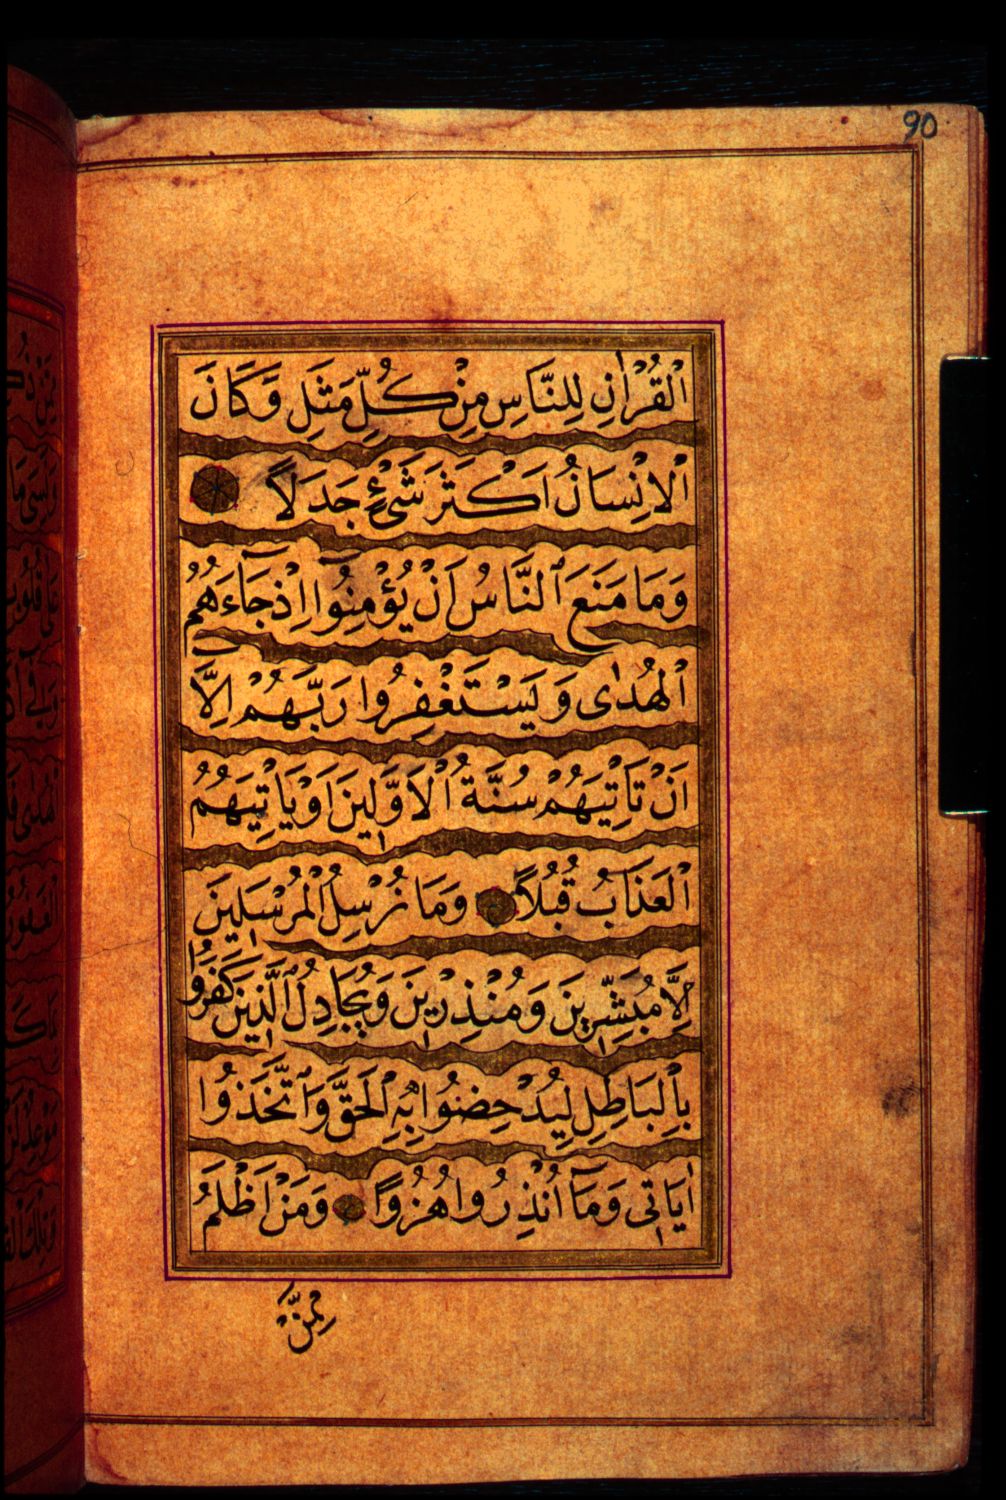 90
الْقُرْاٰنِ لِلنَّاسِ مِنْ كُلِّ مَثَلٍ وَكَانَ
الْاِنْسَانُ اَكْثَرَ شَىْءٍ جَدَلًا
وَمَا مَنَعَ النَّاسَ اَنْ يُؤْمِنُوا اِذْ جَاءَهُمُ
الْهُدٰى وَيَسْتَغْفِرُوا رَبَّهُمْ اِلَّا
اَنْ تَأْتِيَهُمْ سُنَّةُ الْاَوَّلِينَ اَوْ يَأْتِيَهُمُ
الْعَذَابُ قُبُلًا وَمَا نُرْسِلُ الْمُرْسَلِينَ
اِلَّا مُبَشِّرِينَ وَمُنْذِرِينَ وَيُجَادِلُ الَّذِينَ كَفَرُوا
بِالْبَاطِلِ لِيُدْحِضُوا بِهِ الْحَقَّ وَاتَّخَذُوا
اٰيَاتِى وَمَا اُنْذِرُوا هُزُوًا وَمَنْ اَظْلَمُ
مِمَّنْ